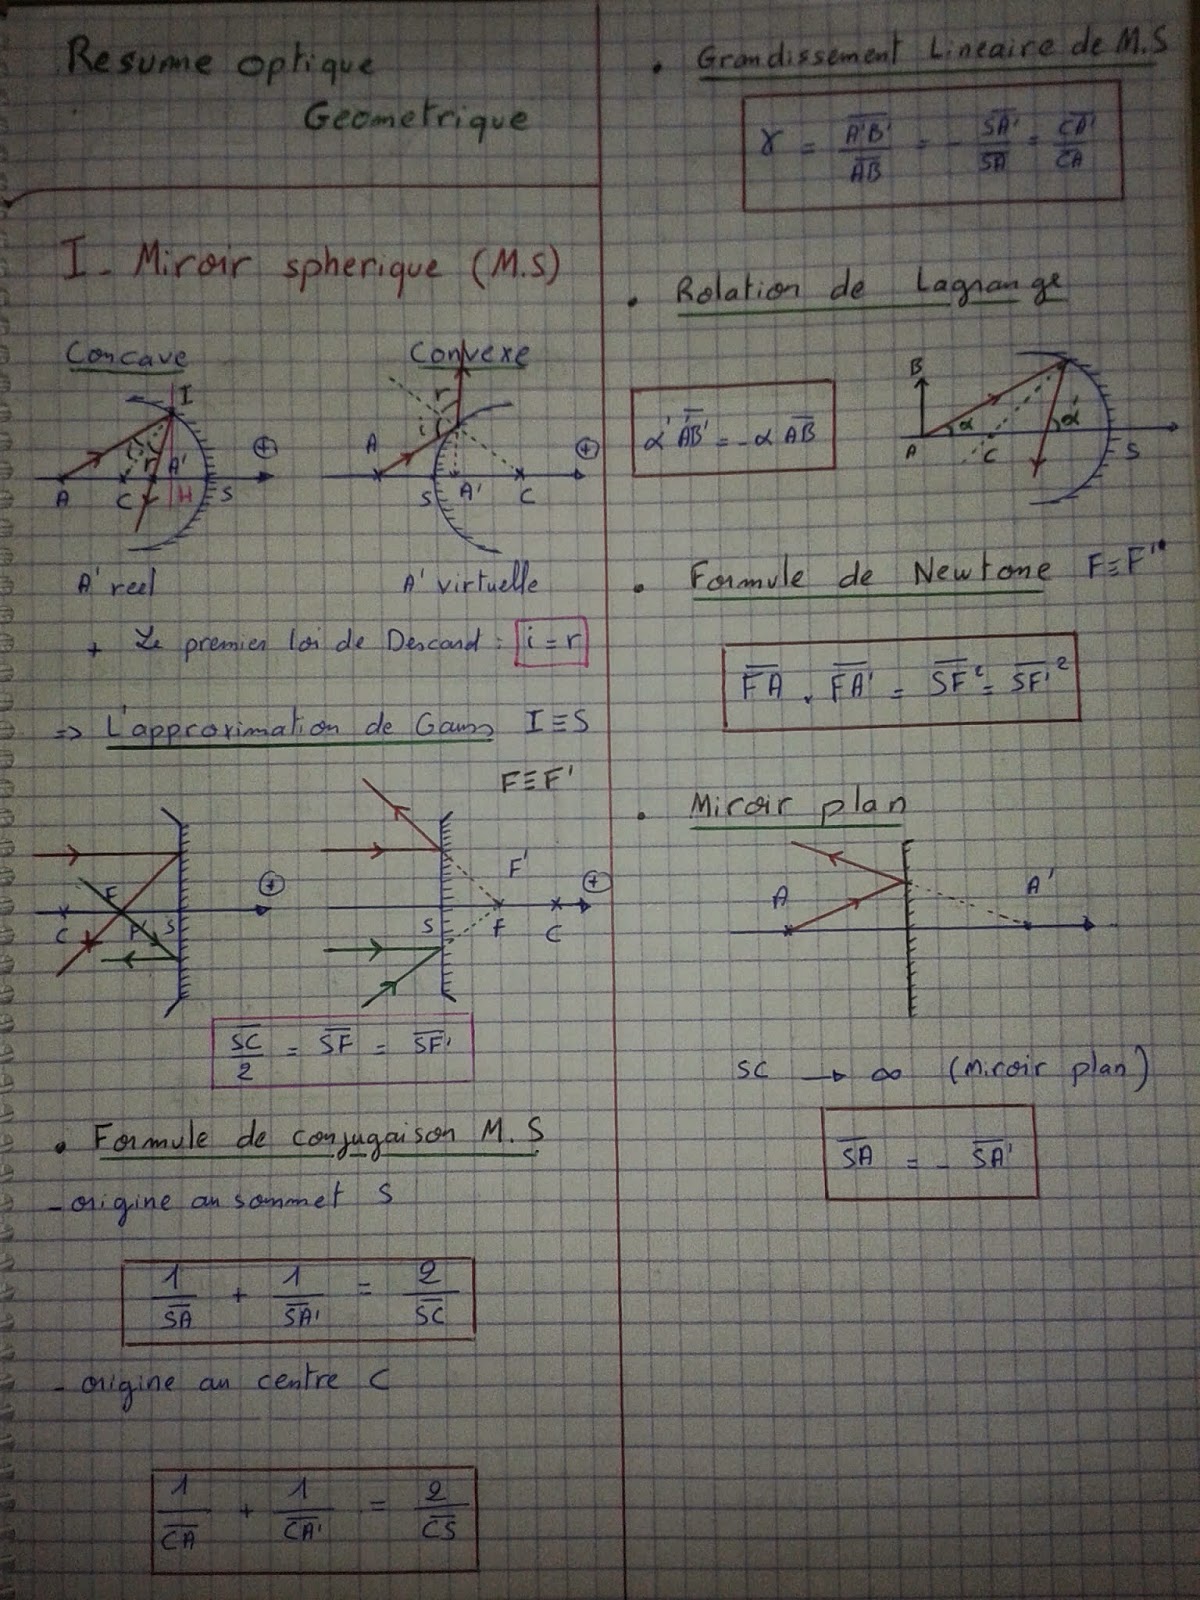 Resume optique
Geometrique
I - Miroir spherique (M.S)
Concave
Convexe
I
r
i
r
i
r
A'
A
+
+
A
C
H
S
S
A'
C
A' reel
A' virtuelle
+ Le premier loi de Descand : i = r
=> L'approximation de Gauss I ≡ S
F ≡ F'
F
+
F'
+
C
F
S
S
F
C
SC̅/2 = S̅F̅ = S̅F̅'
• Formule de conjugaison M.S
- origine au sommet S
1/S̅A̅ + 1/S̅A̅' = 2/S̅C̅
- origine au centre C
1/C̅A̅ + 1/C̅A̅' = 2/C̅S̅
• Grandissement Lineaire de M.S
γ = A̅'B̅'/A̅B̅ = - S̅A̅'/S̅A̅ = C̅A̅'/C̅A̅
• Rolation de Lagrange
α' A̅'B̅' = - α A̅B̅
B
α
α'
A
C
S
• Formule de Newtone F ≡ F'
F̅A̅ . F̅A̅' = S̅F̅² = S̅F̅'²
• Miroir plan
A
A'
SC → ∞ (Miroir plan)
S̅A̅ = - S̅A̅'